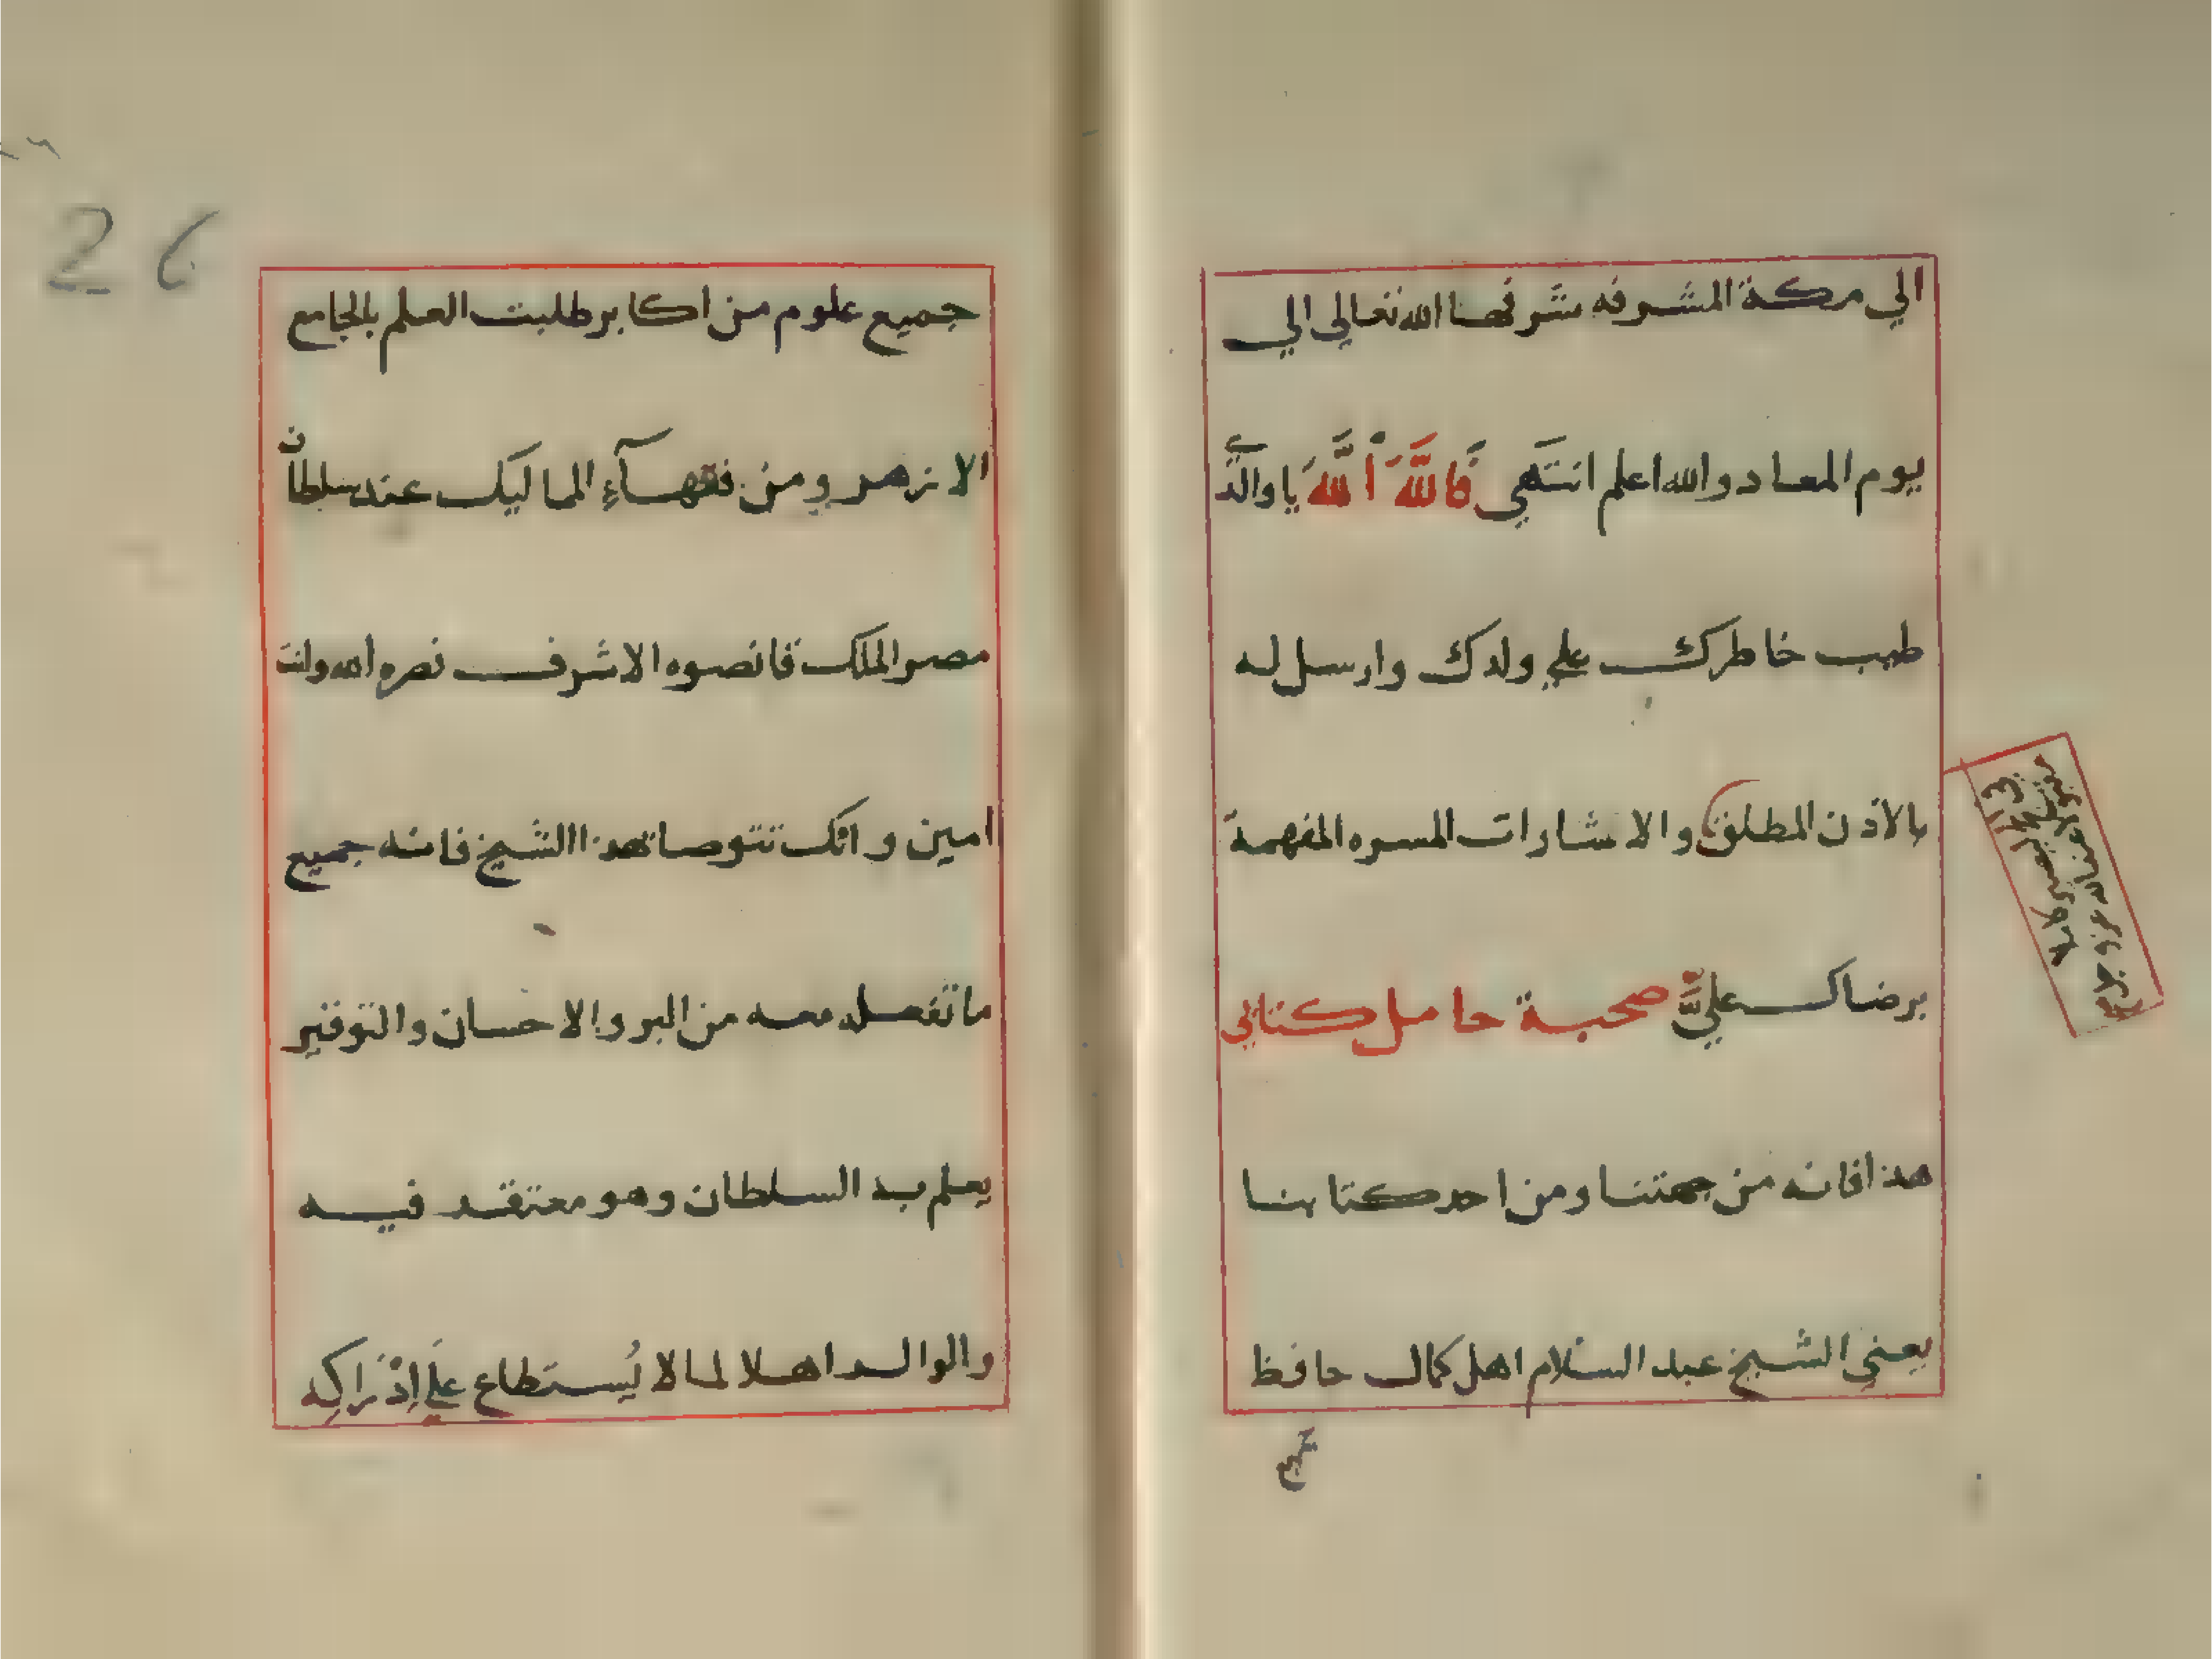 الي مكة المشرفه شرفها الله تعالي الي
يوم المعاد والله اعلم انتهي فَاللَّهَ أْ للَّهَ يا والدَّ
طيب خاطرك علي ولدك وارسل له
بالاذن المطلق والاشارات المسره المفهمة
برضاك عليَّ صحبة حامل كتابي
هذا فانه من جهتنا ومن احد كتابنا
يعني الشيخ عبد السلام اهل كمال حافظ
جميع
جميع علوم من اكابر طلبت العلم بالجامع
الازهر ومن فقهآء المماليك عند سلطان
مصر الملك قانصوه الاشرف نصره الله وانت
امين وانك تتوصا بهذا الشيخ فانه جميع
ما تفعله معه من البر والاحسان والتوقير
يعلم به السلطان وهو معتقد فيه
والوالد اهلا لما لا يُستطاع علي إدْرَاكِه
26